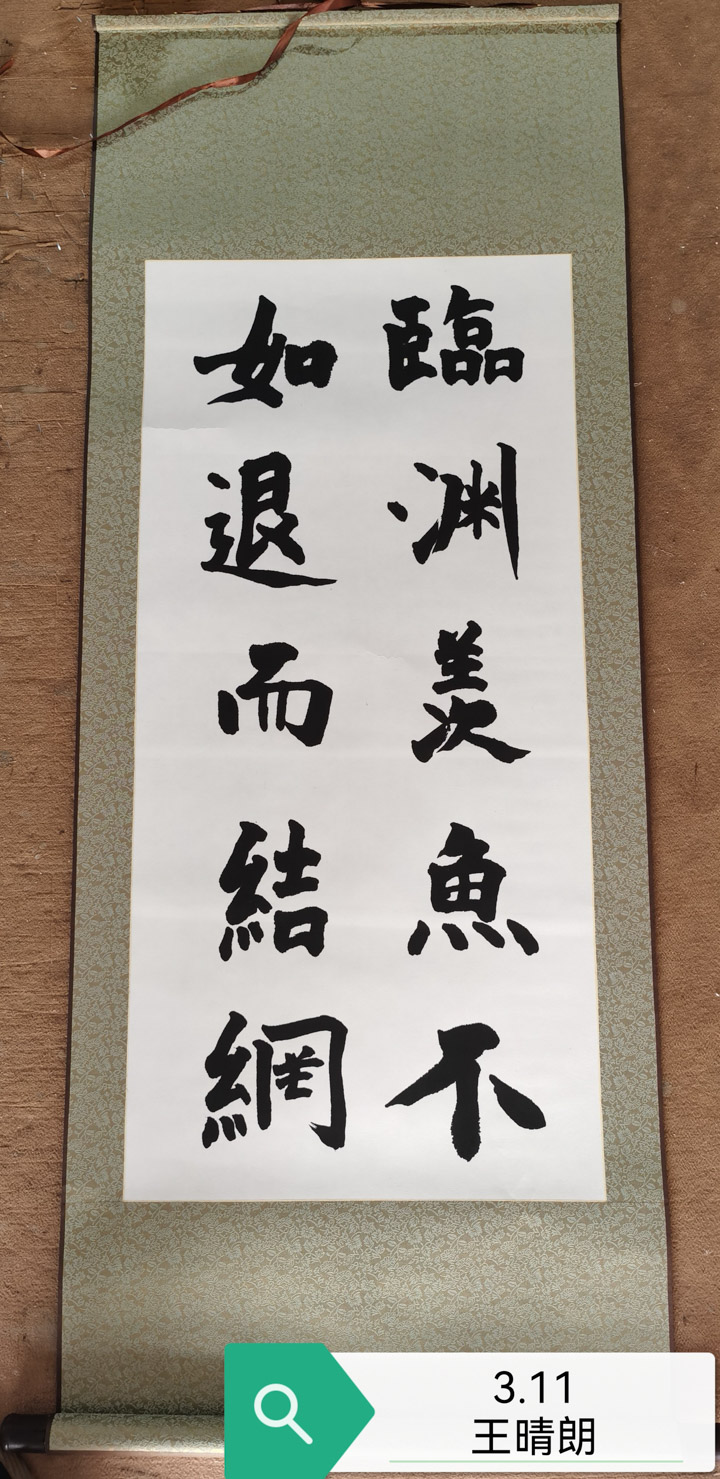 臨渊羡魚不
如退而結網
3.11
王晴朗